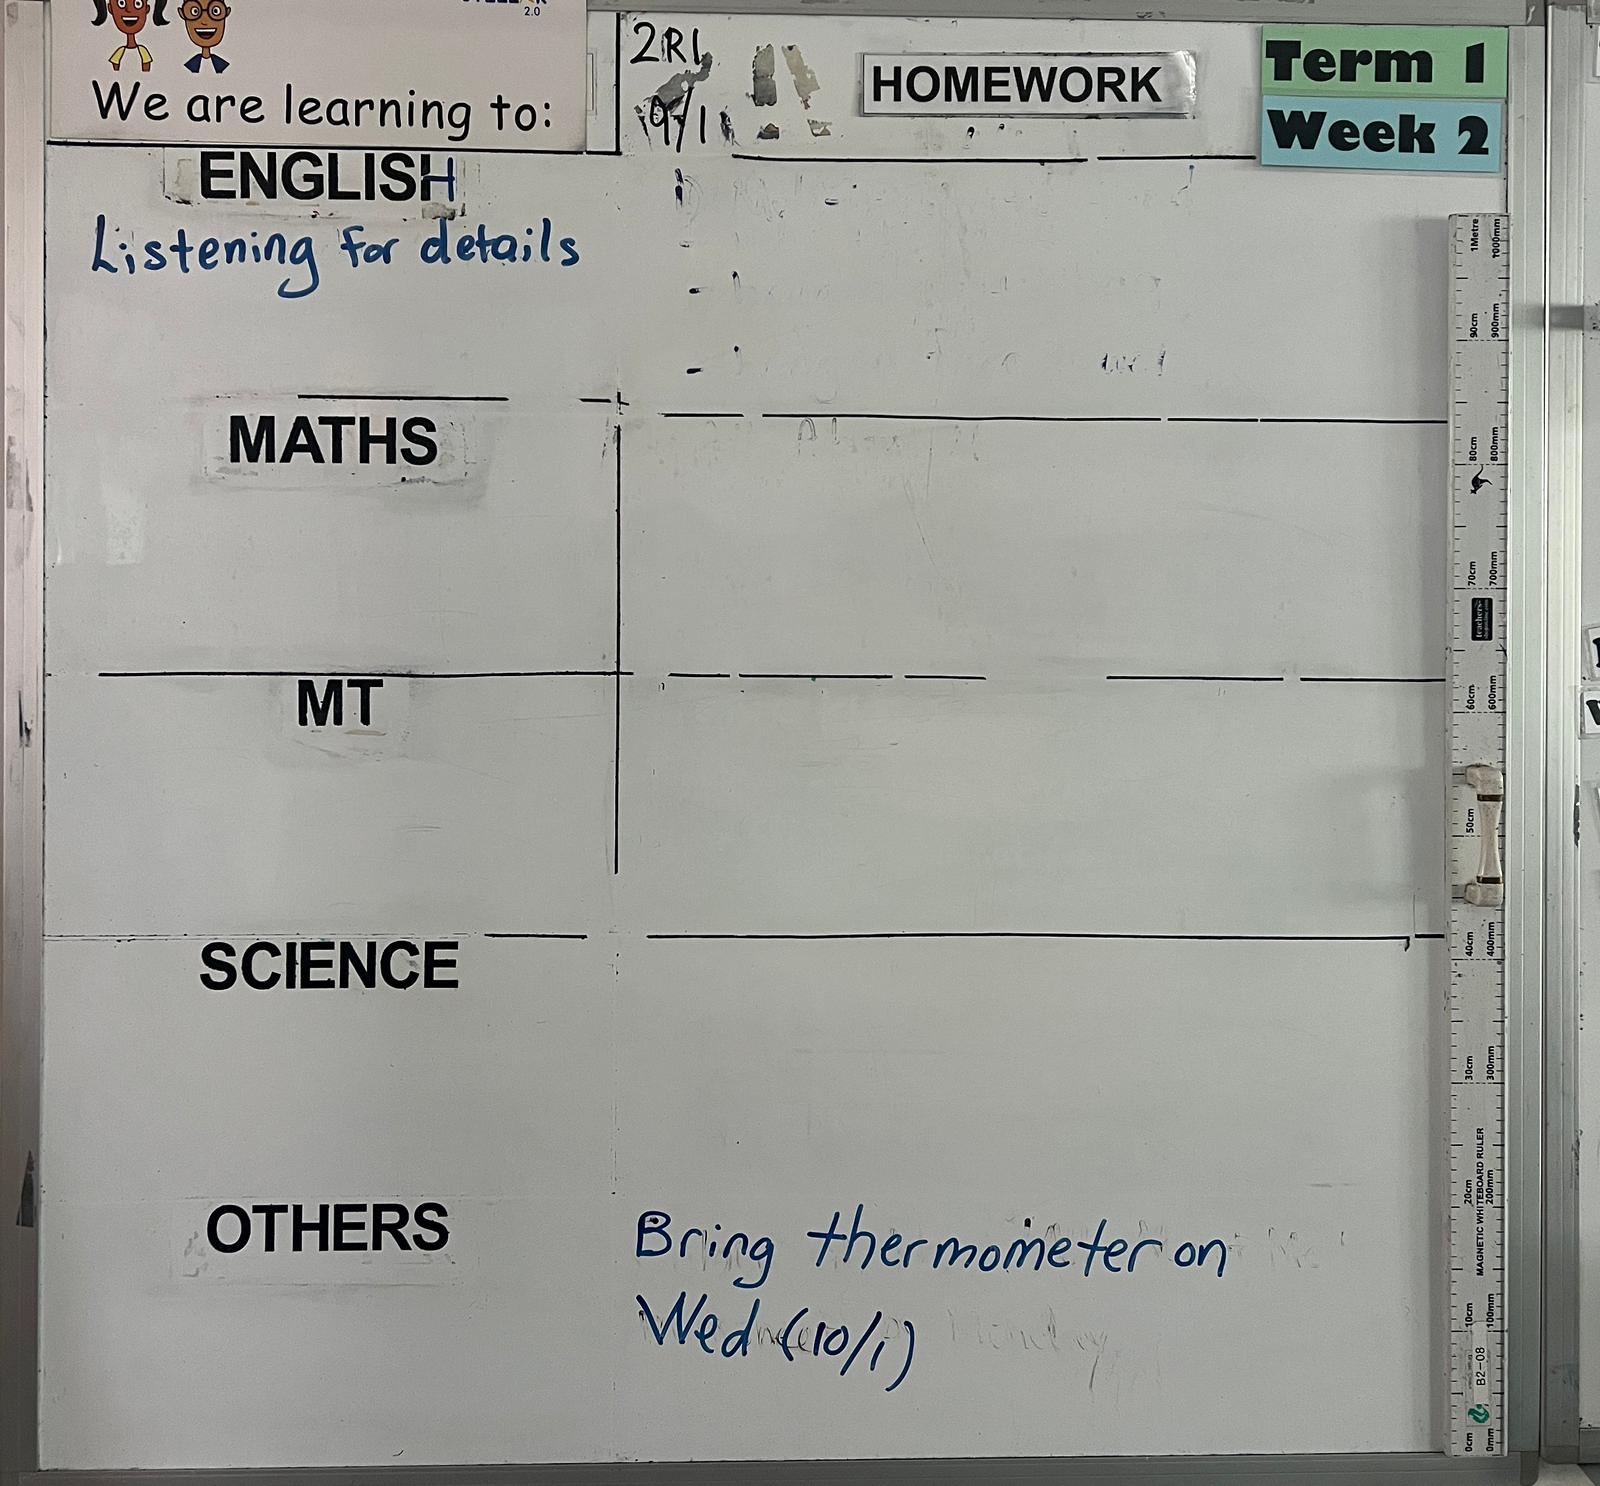 2.0
We are learning to:
2R1
9/1
HOMEWORK
Term 1
Week 2
ENGLISH
Listening for details
MATHS
MT
SCIENCE
OTHERS
Bring thermometer on
Wed (10/1)
1Metre 1000mm
90cm 900mm
80cm 800mm
70cm 700mm
teachers
60cm 600mm
50cm
40cm 400mm
30cm 300mm
20cm 200mm
MAGNETIC WHITEBOARD RULER
10cm 100mm
B2-08
0cm 0mm